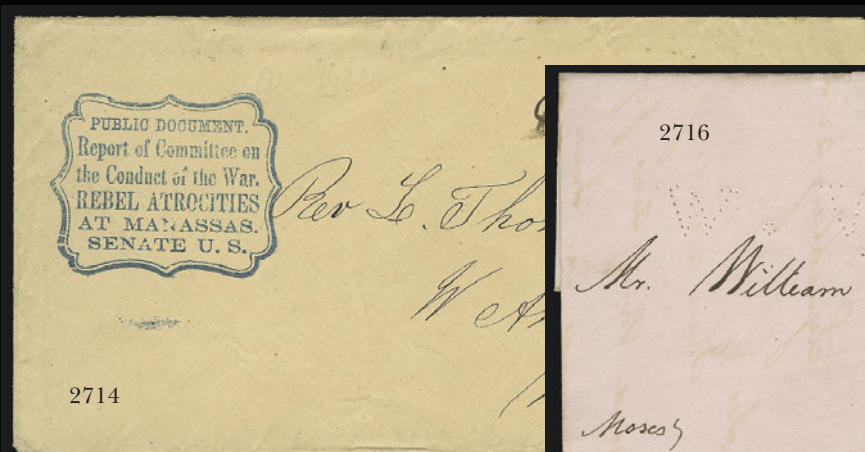 PUBLIC DOCUMENT.
Report of Committee on
the Conduct of the War.
REBEL ATROCITIES
AT MANASSAS.
SENATE U. S.
Rev L. Tho
W
2714
2716
W.
Mr. William
Moses